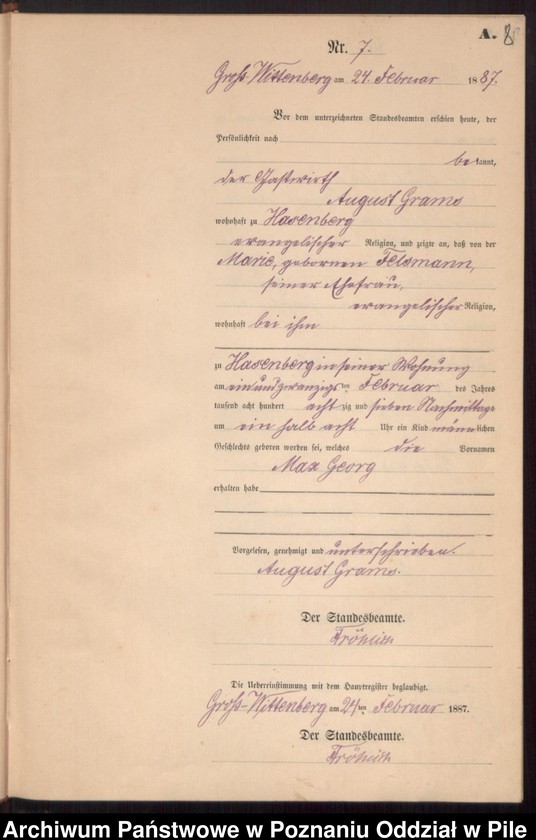 A. 8
Nr. 7.
Groß Wittenberg am 24. Februar 1887.
Vor dem unterzeichneten Standesbeamten erschien heute, der
Persönlichkeit nach
bekannt,
der Gastwirth
August Grams
wohnhaft zu Hasenberg
evangelischer Religion, und zeigte an, daß von der
Marie, gebornen Felsmann,
seiner Ehefrau,
evangelischer Religion,
wohnhaft bei ihm
zu Hasenberg in seiner Wohnung
am einundzwanzigsten Februar des Jahres
tausend acht hundert achtzig und sieben Nachmittags
um ein halb acht Uhr ein Kind männlichen
Geschlechts geboren worden sei, welches die Vornamen
Max Georg
erhalten habe
Vorgelesen, genehmigt und unterschrieben.
August Grams.
Der Standesbeamte.
Fröhlich
Die Uebereinstimmung mit dem Hauptregister beglaubigt.
Groß-Wittenberg am 24ten Februar 1887.
Der Standesbeamte.
Fröhlich
Archiwum Państwowe w Poznaniu Oddział w Pile